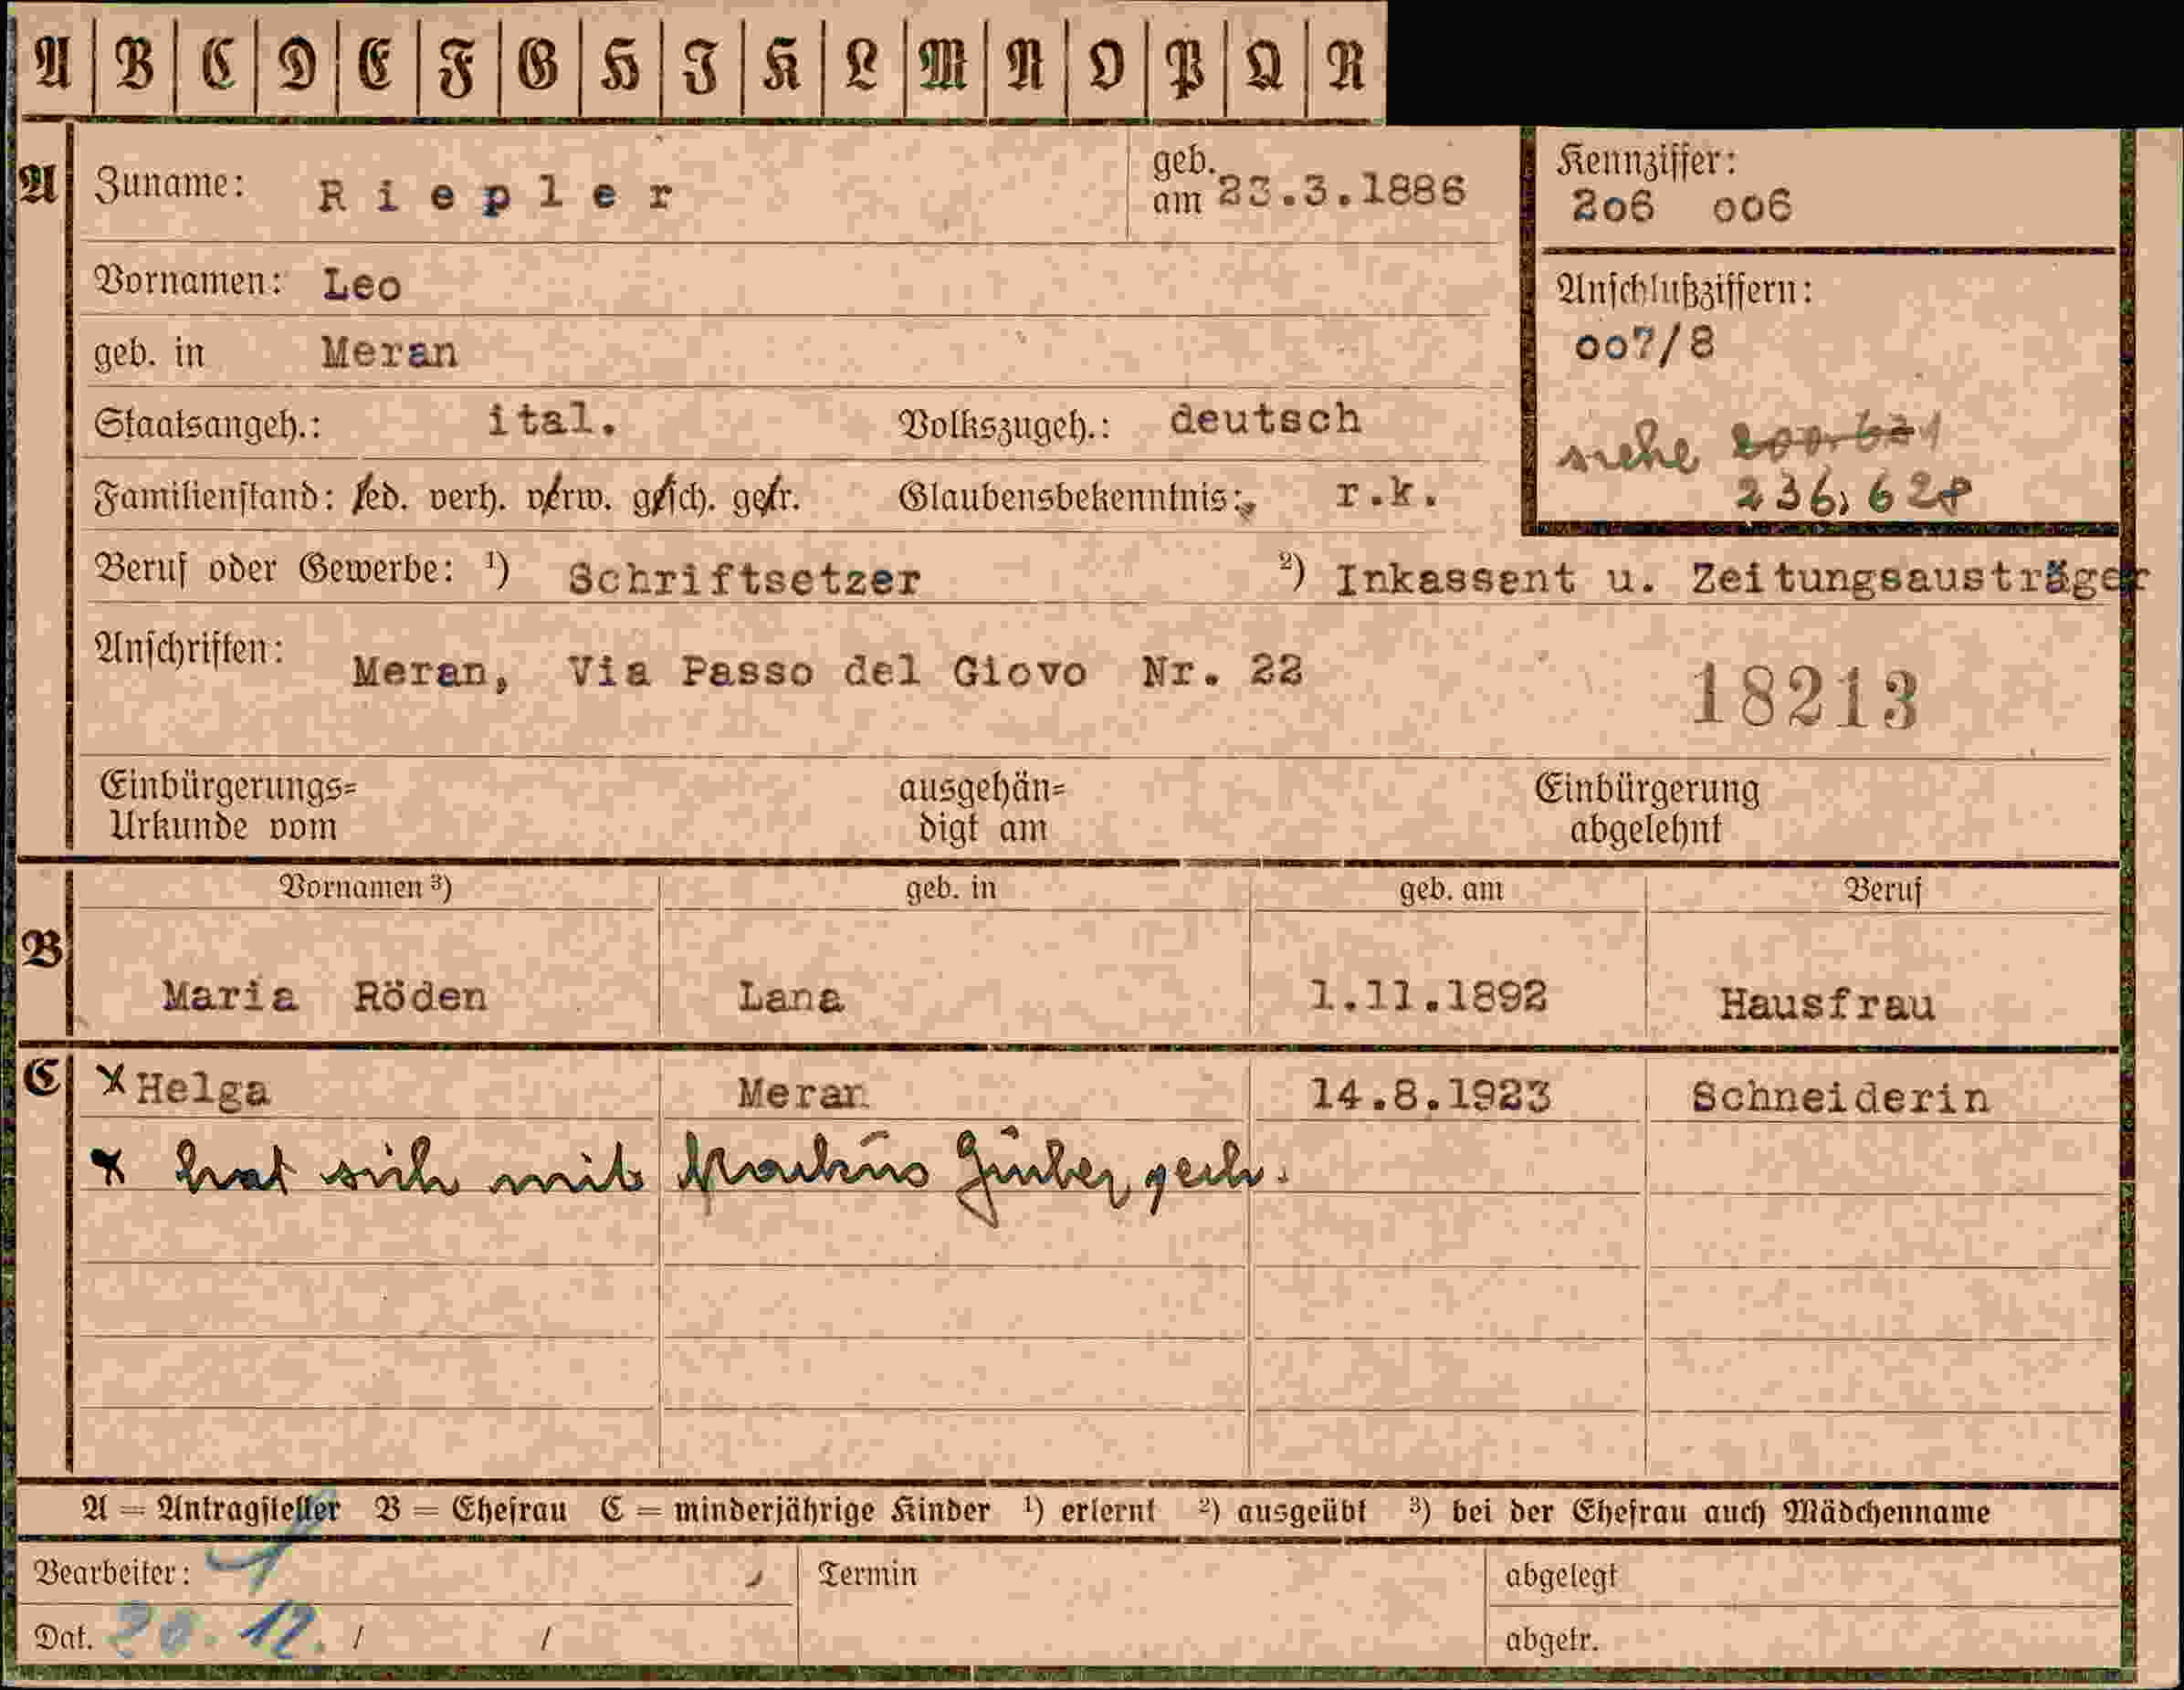 A B C D E F G H I K L M N O P Q R
A Zuname: Riepler geb. am 23.3.1886
Kennziffer:
206 006
Vornamen: Leo
Anschlußziffern:
007/8
geb. in Meran
Staatsangeh.: ital. Volkszugeh.: deutsch
siehe
236,628
Familienstand: led. verh. verw. gesch. getr. Glaubensbekenntnis: r.k.
Beruf oder Gewerbe: ¹) Schriftsetzer ²) Inkassent u. Zeitungsausträger
Anschriften: Meran, Via Passo del Giovo Nr. 22
18213
Einbürgerungs=
Urkunde vom
ausgehän=
digt am
Einbürgerung
abgelehnt
B Vornamen ³) geb. in geb. am Beruf
Maria Röden Lana 1.11.1892 Hausfrau
C x Helga Meran 14.8.1923 Schneiderin
x hat sich mit Markus
A = Antragsteller B = Ehefrau C = minderjährige Kinder ¹) erlernt ²) ausgeübt ³) bei der Ehefrau auch Mädchenname
Bearbeiter: Termin abgelegt
Dat. 20. 12. / / abgetr.